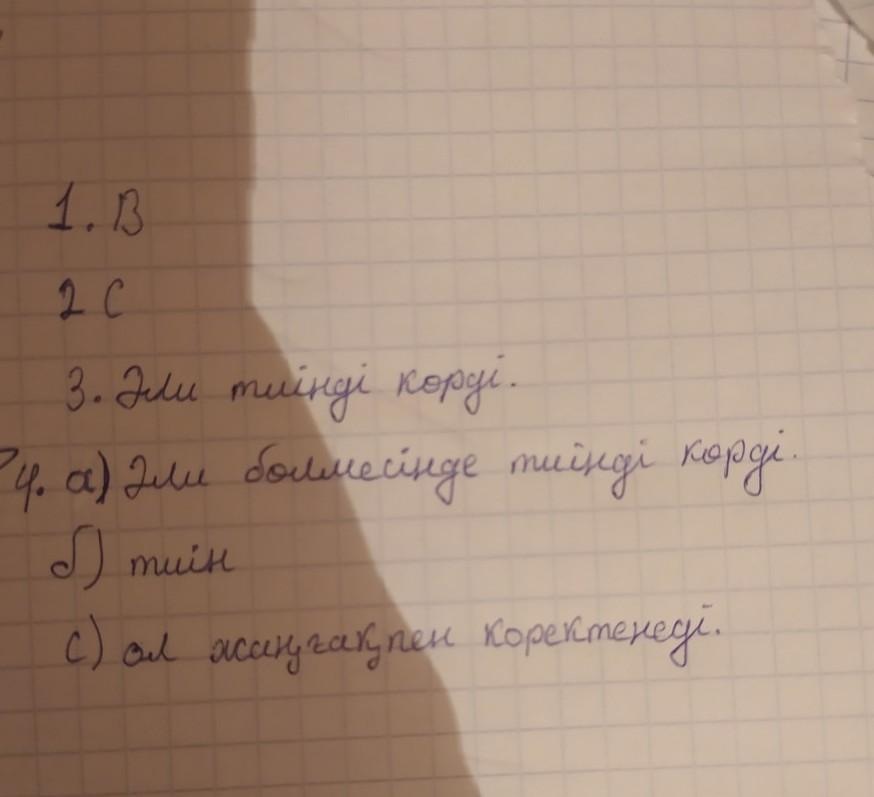 1. В
2 С
3. Әли тиінді көрді.
4. а) Әли бөлмесінде тиінді көрді.
б) тиін
с) ол жаңғақпен коректенеді.